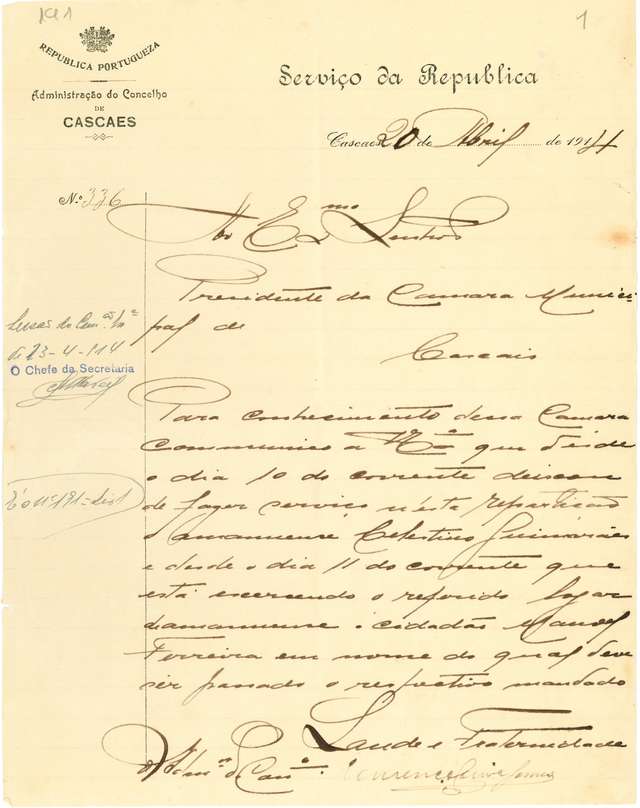 1
REPUBLICA PORTUGUEZA
Administração do Concelho
DE
CASCAES
Serviço da Republica
Cascaes 20 de Abril de 1914
N.º 336
Ao Ex.mo Senhor
Presidente da Camara Munici-
pal de
Cascais
de 23-4-914
O Chefe da Secretaria
Para conhecimento dessa Camara
communico a V.Ex.a que desde
o dia 10 do corrente deixou
de fazer serviço n'esta repartição
o amanuense Celestino Guimarães
e desde o dia 11 do corrente que
está exercendo o referido logar
d'amanuense o cidadão Manoel
Ferreira em nome do qual deve
ser passado o respectivo mandado
Saude e Fraternidade